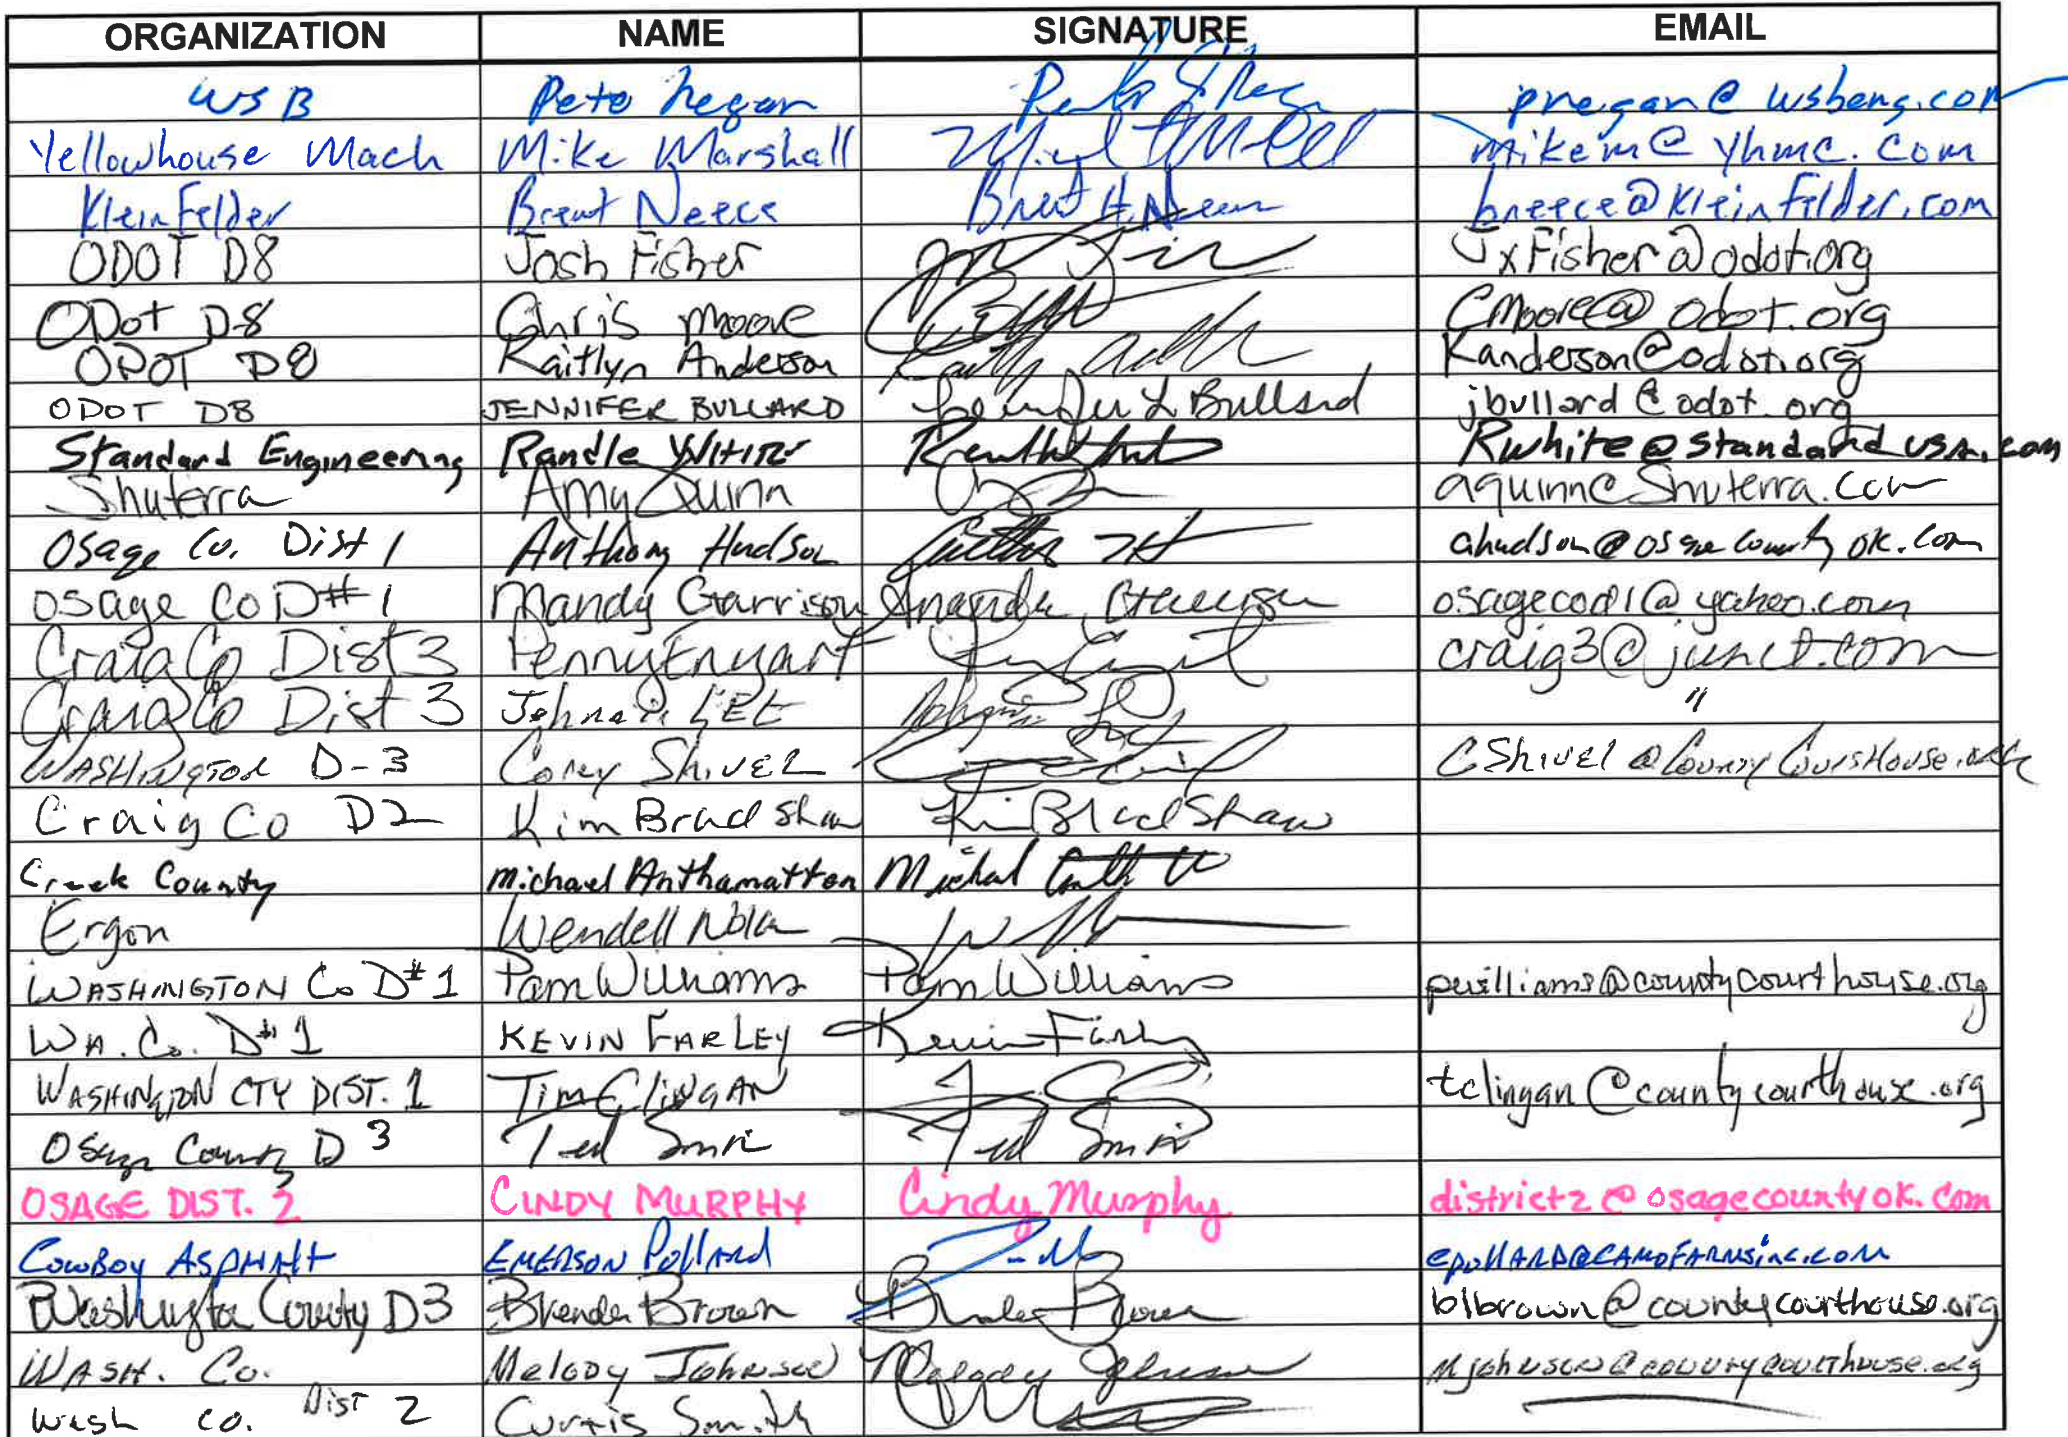 ORGANIZATION NAME SIGNATURE EMAIL
WSB Pete Regan pregan@wsbeng.com
Yellowhouse Mach Mike Marshall mikem@yhmc.com
Kleinfelder Brent Neece Brent H. Neece bneece@Kleinfelder.com
ODOT D8 Josh Fisher JxFisher@odot.org
ODot D-8 Chris Moore CMoore@odot.org
ODOT D8 Kaitlyn Anderson Kanderson@odot.org
ODOT D8 JENNIFER BULLARD Jennifer L Bullard jbullard@odot.org
Standard Engineering Randle White Rwhite@standardusa.com
Shuterra Amy Quinn aquinn@Shuterra.com
Osage Co. Dist 1 Anthony Hudson ahudson@osagecountyok.com
Osage Co D#1 Mandy Garrison Amanda Garrison osagecod1@yahoo.com
Craig Co Dist 3 Penny Enyart craig3@junct.com
Craig Co Dist 3 Johnnie LEE "
WASHINGTON D-3 Corey Shivel CShivel@CountyCourtHouse.org
Craig Co D2 Kim Bradshaw Kim Bradshaw
Creek County Michael Anthamatten Michael
Ergon Wendell Nola
WASHINGTON Co D#1 Pam Williams Pam Williams pwilliams@countycourthouse.org
WA. Co. D#1 KEVIN FARLEY Kevin Farley
WASHINGTON CTY DIST. 1 TIM CLINGAN tclingan@countycourthouse.org
Osage County D3 Ted Smith Ted Smith
OSAGE DIST. 2 CINDY MURPHY Cindy Murphy district2@osagecountyok.com
COWBOY ASPHALT EMERSON Pollard epollard@CAMOFARMSinc.com
Washington County D3 Brenda Brown Brenda Brown blbrown@countycourthouse.org
WASH. Co. Melody Johnson Melody Johnson mjohnson@countycourthouse.org
Wash Co. Dist 2 Curtis Smith